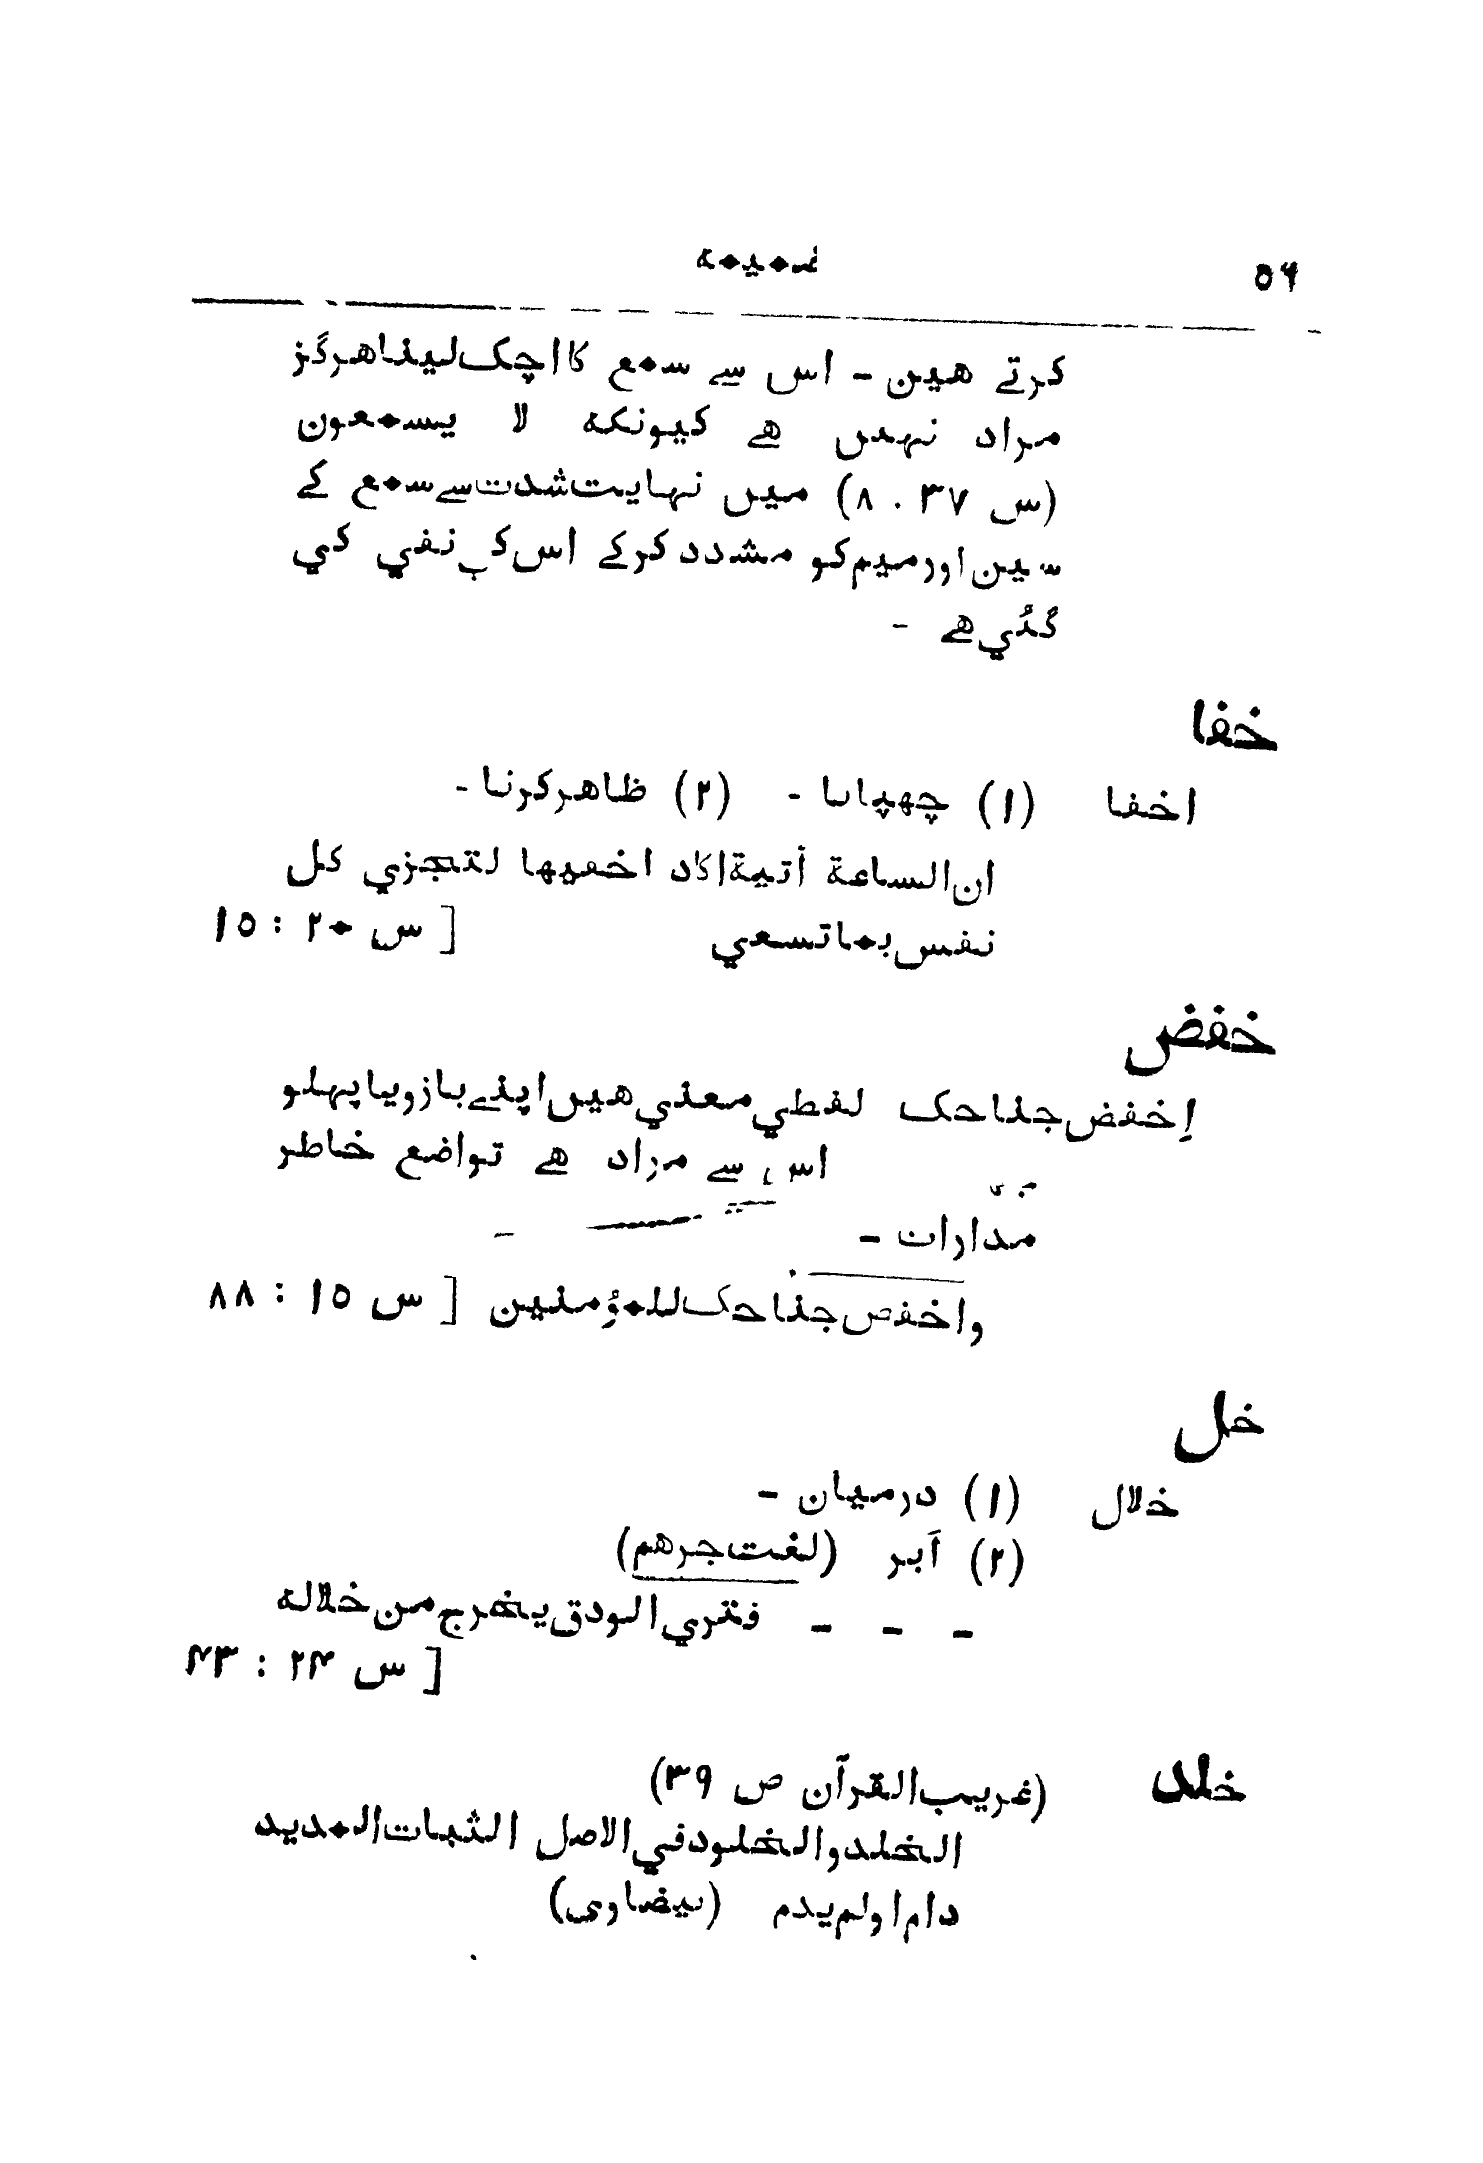 ۵۶ ضمیمہ
کرتے ھین - اس سے سمع کا اچک لینا ھرگز
مراد نہیں ھے کیونکہ لا یسمعون
(س ۳۷ . ۸) میں نہایت شدت سے سمع کے
سین اور میم کو مشدد کرکے اس کی نفي کي
گئي ھے -
خفا
اخفا (۱) چھپانا - (۲) ظاھر کرنا -
ان الساعة أتیة اکاد اخفیھا لتجزي کل
نفس بما تسعي [ س ۲۰ : ۱۵
خفض
اِخفض جناحک لفظي معني ھیں اپنے بازو یا پہلو
اس سے مراد ھے تواضع خاطر
مدارات -
و اخفض جناحک للمؤمنین [ س ۱۵ : ۸۸
خل
خلال (۱) درمیان -
(۲) اَبر (لغت جرھم)
- - - فتري الودق یخرج من خلالہ
[ س ۲۴ : ۴۳
خلد (غریب القرآن ص ۳۹)
الخلد و الخلود في الاصل الثبات المدید
دام او لم یدم (بیضاوی)